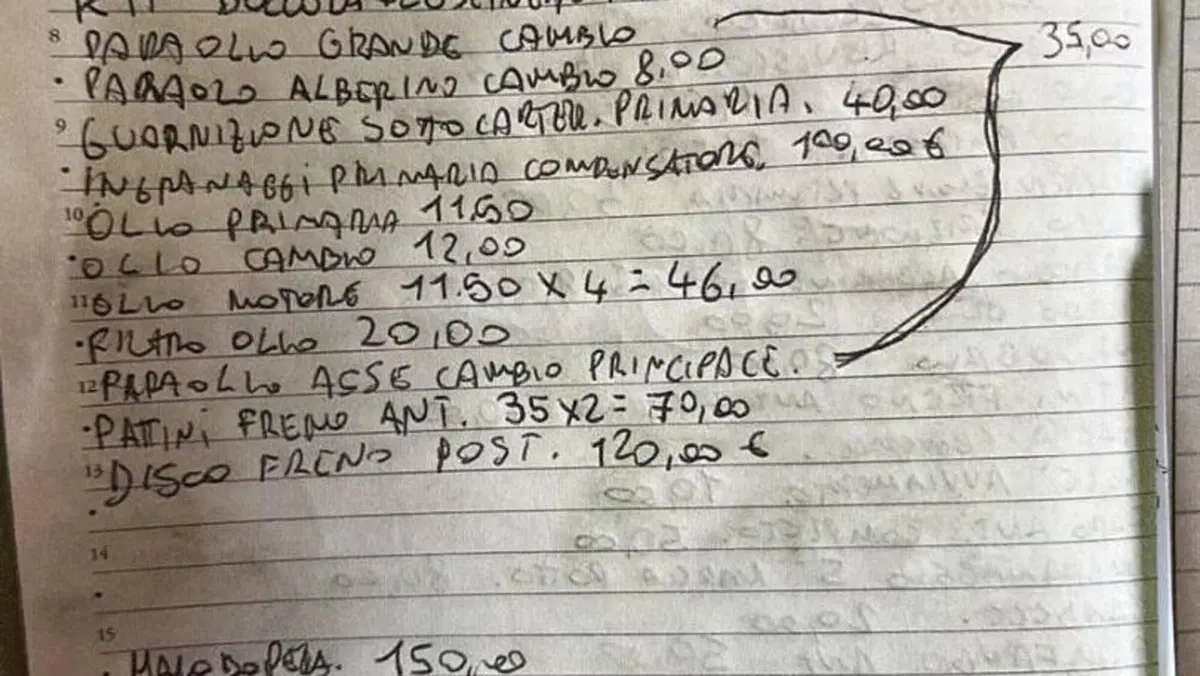 8 PARAOLIO GRANDE CAMBIO 35,00
PARAOLIO ALBERINO CAMBIO 8,00
9 GUARNIZIONE SOTTOCARTER. PRIMARIA. 40,00
INGRANAGGI PRIMARIO COMPENSATORE. 100,00 €
10 OLIO PRIMARIA 11.50
OLIO CAMBIO 12,00
11 OLIO MOTORE 11.50 X 4 = 46,00
FILTRO OLIO 20,00
12 PARAOLIO ASSE CAMBIO PRINCIPALE.
PATTINI FRENO ANT. 35 X 2 = 70,00
13 DISCO FRENO POST. 120,00 €
14
15
MANODOPERA. 150,00